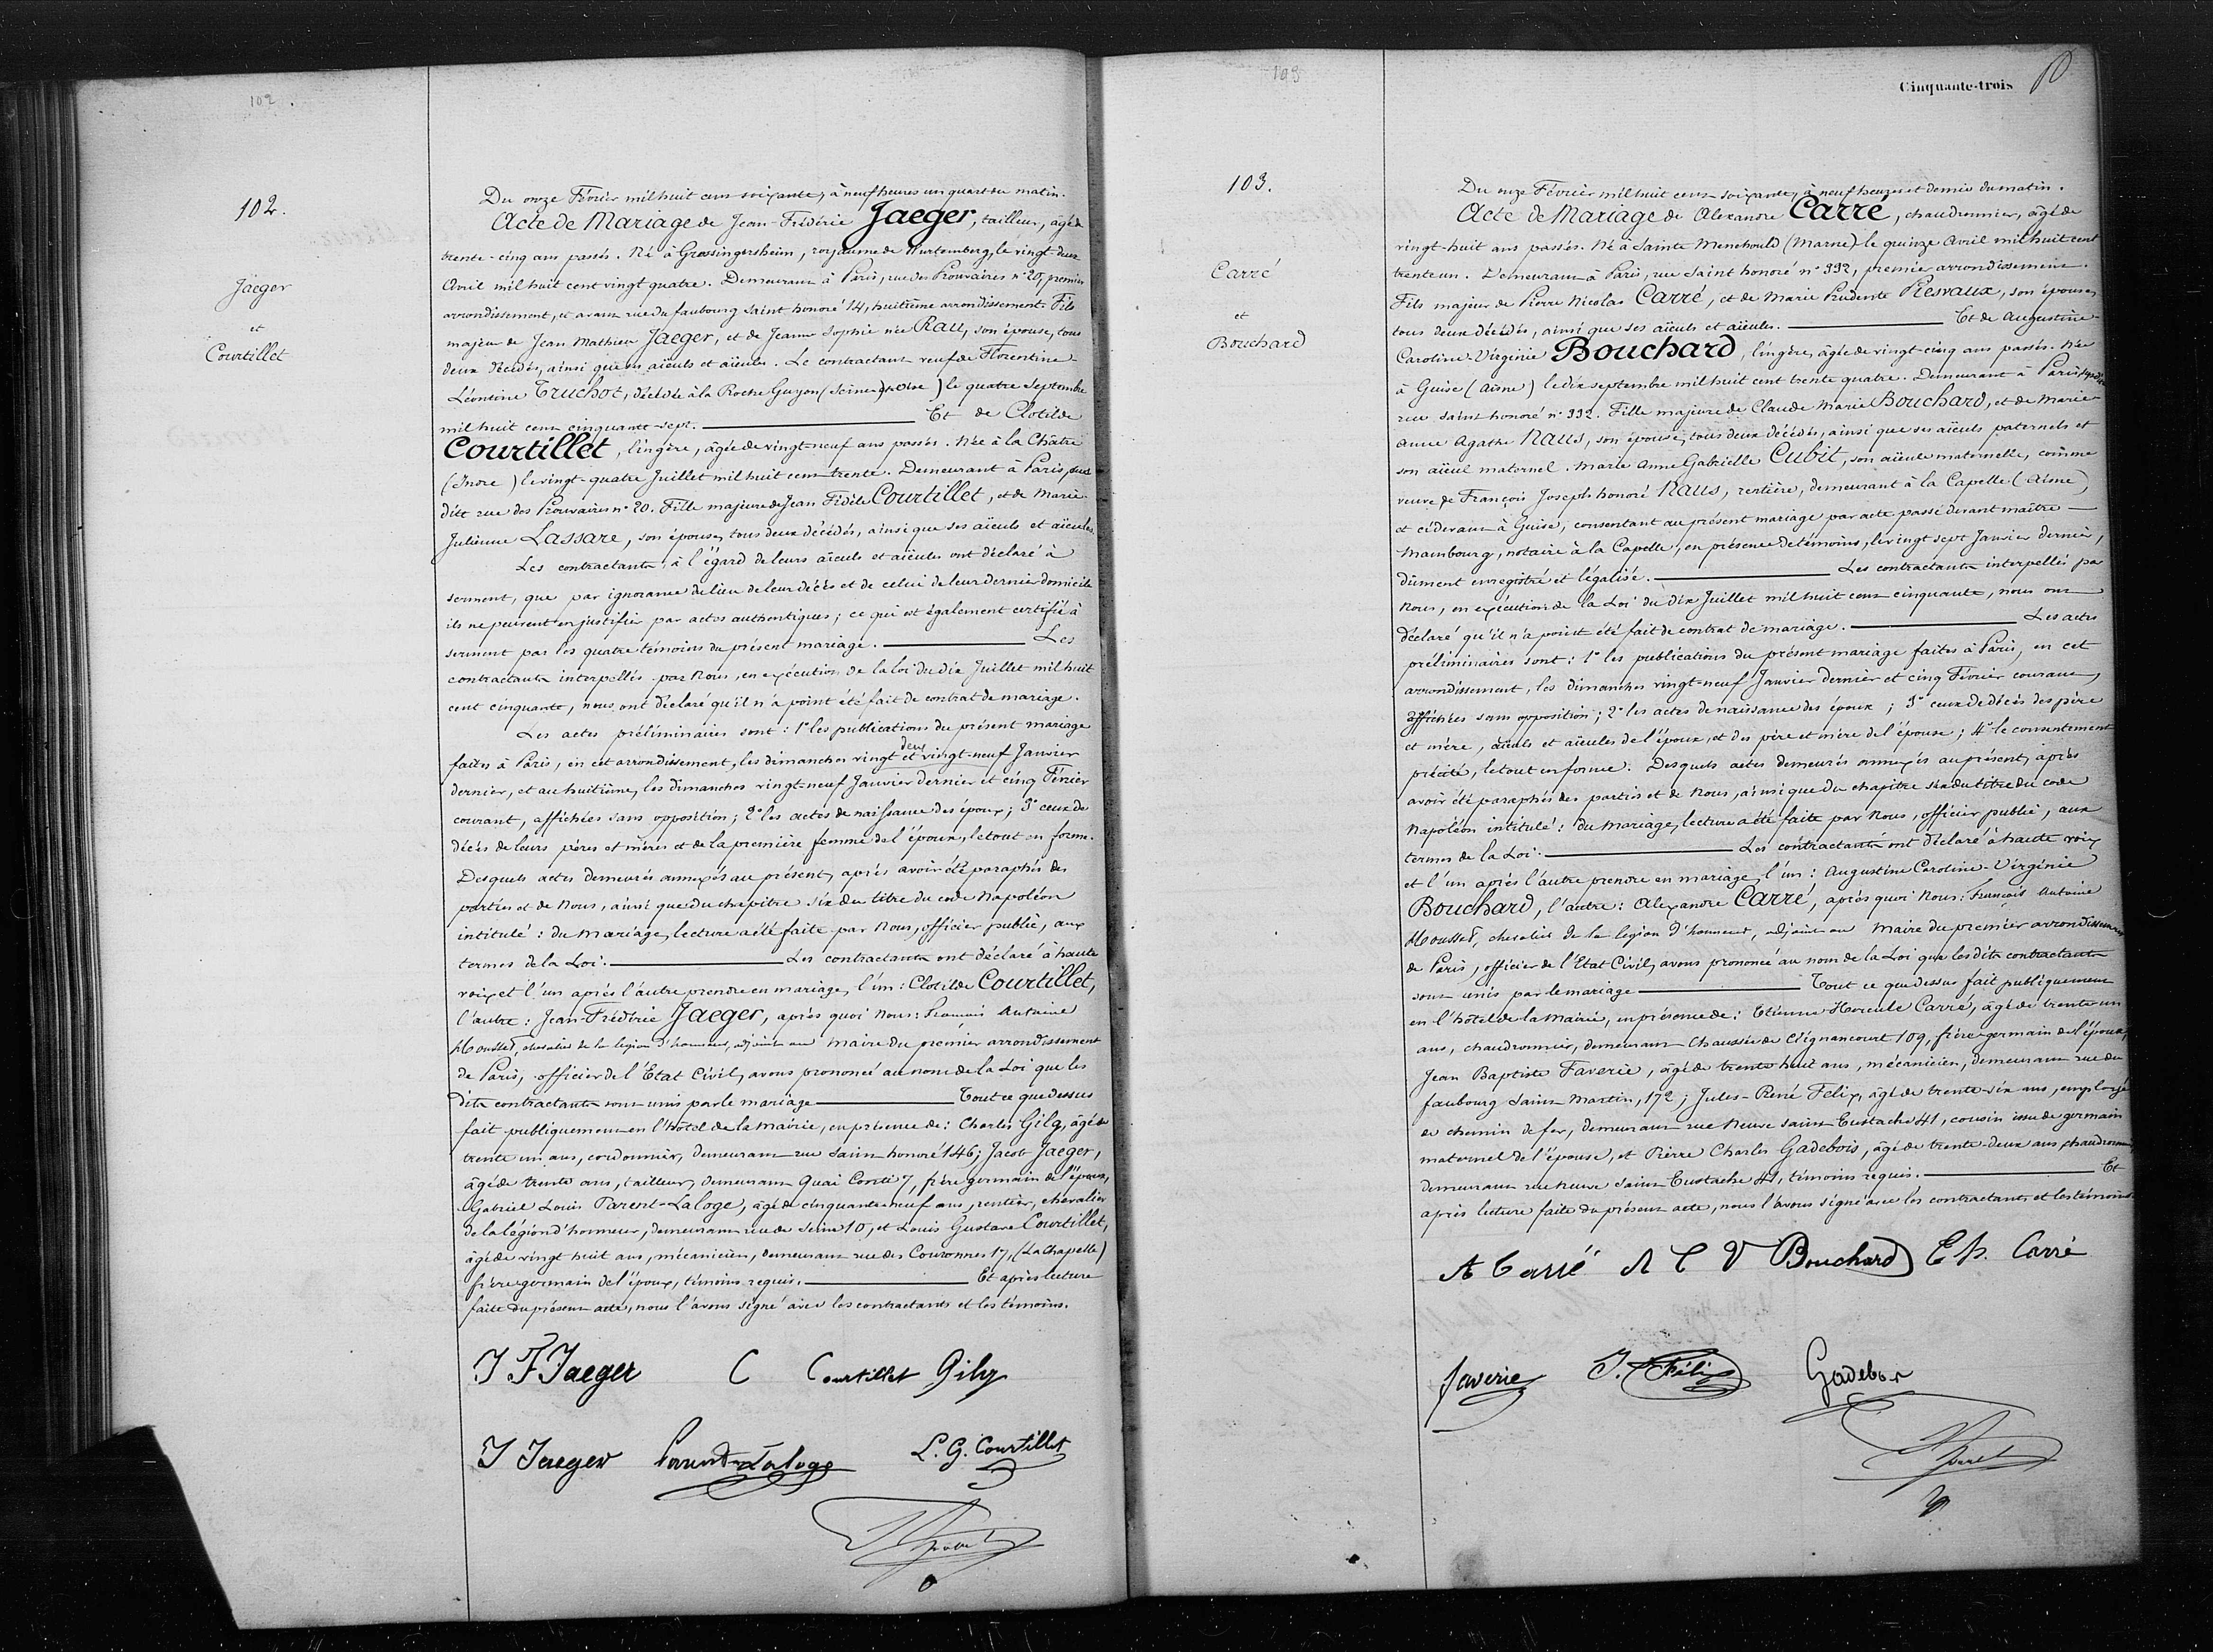 102.
102.
Jaeger
et
Courtillet
Du onze Février mil huit cent soixante, à neuf heures un quart du matin.
Acte de Mariage de Jean-Frédéric Jaeger, tailleur, âgé de
trente-cinq ans passés. Né à Grossingersheim, royaume de Wurtemberg, le vingt-deux
Avril mil huit cent vingt quatre. Demeurant à Paris, rue des Prouvaires n° 20, premier
arrondissement, et avant rue du faubourg Saint honoré 14, huitième arrondissement. Fils
majeur de Jean Mathieu Jaeger, et de Jeanne Sophie née Rau, son épouse, tous
deux décédés, ainsi que ses aïeuls et aïeules. Le contractant veuf de Florentine
Léontine Truchot, décédée à la Roche Guyon (Seine et Oise) le quatre Septembre
mil huit cent cinquante-sept. Et de Clotilde
Courtillet, lingère, âgée de vingt-neuf ans passés. Née à la Châtre
(Indre) le vingt-quatre Juillet mil huit cent trente. Demeurant à Paris, sus
dite rue des Prouvaires n° 20. Fille majeure de Jean Fidèle Courtillet, et de Marie
Julienne Lassare, son épouse, tous deux décédés, ainsi que ses aïeuls et aïeules.
Les contractants, à l'égard de leurs aïeuls et aïeules ont déclaré à
serment, que par ignorance du lieu de leur décès et de celui de leur dernier domicile
ils ne peuvent en justifier par actes authentiques; ce qui est également certifié à
serment par les quatre témoins du présent mariage. Les
contractants interpellés par Nous, en exécution de la loi du dix Juillet mil huit
cent cinquante, nous ont déclaré qu'il n'a point été fait de contrat de mariage.
Les actes préliminaires sont: 1° les publications du présent mariage
faites à Paris, en cet arrondissement, les dimanches vingt deux et vingt-neuf Janvier
dernier, et au huitième, les dimanches vingt-neuf Janvier dernier et cinq Février
courant, affichées sans opposition; 2° les actes de naissance des époux; 3° ceux de
décès de leurs pères et mères et de la première femme de l'époux, le tout en forme.
Desquels actes demeurés annexés au présent, après avoir été paraphés des
parties et de Nous, ainsi que du chapitre six du titre du code Napoléon
intitulé: du Mariage, lecture a été faite par Nous, officier public, aux
termes de la Loi. Les contractants ont déclaré à haute
voix et l'un après l'autre prendre en mariage, l'un: Clotilde Courtillet,
l'autre: Jean-Frédéric Jaeger, après quoi Nous: François Antoine
Mousset, chevalier de la légion d'honneur, adjoint au Maire du premier arrondissement
de Paris, officier de l'Etat Civil, avons prononcé au nom de la Loi que les
dits contractants sont unis par le mariage Tout ce que dessus
fait publiquement en l'hôtel de la Mairie, en présence de: Charles Gilg, âgé de
trente un ans, cordonnier, demeurant rue Saint honoré 146; Jacob Jaeger,
âgé de trente ans, tailleur, demeurant Quai Conti 7, frère germain de l'époux,
Gabriel Louis Parent-Laloge, âgé de cinquante neuf ans, rentier, chevalier
de la légion d'honneur, demeurant rue de Seine 10, et Louis Gustave Courtillet,
âgé de vingt huit ans, mécanicien, demeurant rue des Couronnes 17, (La Chapelle)
frère germain de l'époux, témoins requis. Et après lecture
faite du présent acte, nous l'avons signé avec les contractants et les témoins.
J F Jaeger C Courtillet Gilg
J Jaeger Parent-Laloge L. G. Courtillet
103
Cinquante-trois
103.
Carré
et
Bouchard
Du onze Février mil huit cent soixante, à neuf heures et demie du matin.
Acte de Mariage de Alexandre Carré, chaudronnier, âgé de
vingt-huit ans passés. Né à Sainte Menehould (Marne) le quinze Avril mil huit cent
trente un. Demeurant à Paris, rue Saint honoré n° 332, premier arrondissement.
Fils majeur de Pierre Nicolas Carré, et de Marie Prudente Resvaux, son épouse,
tous deux décédés, ainsi que ses aïeuls et aïeules. Et de Augustine
Caroline-Virginie Bouchard, lingère, âgée de vingt-cinq ans passés. Née
à Guise (Aisne) le dix septembre mil huit cent trente quatre. Demeurant à Paris susdite
rue saint honoré n° 332. Fille majeure de Claude Marie Bouchard, et de Marie
Anne Agathe Naus, son épouse, tous deux décédés, ainsi que ses aïeuls paternels et
son aïeul maternel. Marie Anne Gabrielle Cubit, son aïeule maternelle, comme
veuve de François Joseph honoré Naus, rentière, demeurant à la Capelle (Aisne)
et cidevant à Guise, consentant au présent mariage par acte passé devant maître
Mambourg, notaire à la Capelle, en présence de témoins, le vingt sept Janvier dernier,
dûment enregistré et légalisé. Les contractants interpellés par
Nous, en exécution de la Loi du dix Juillet mil huit cent cinquante, nous ont
déclaré qu'il n'a point été fait de contrat de mariage. Les actes
préliminaires sont: 1° les publications du présent mariage faites à Paris, en cet
arrondissement, les dimanches vingt-neuf Janvier dernier et cinq Février courant,
affichées sans opposition; 2° les actes de naissance des époux; 3° ceux de décès des père
et mère, aïeuls et aïeules de l'époux, et des père et mère de l'épouse; 4° le consentement
précité, le tout en forme. Desquels actes demeurés annexés au présent, après
avoir été paraphés des parties et de Nous, ainsi que du chapitre six du titre du code
Napoléon intitulé: du Mariage, lecture a été faite par Nous, officier public, aux
termes de la Loi. Les contractants ont déclaré à haute voix
et l'un après l'autre prendre en mariage, l'un: Augustine Caroline-Virginie
Bouchard, l'autre: Alexandre Carré, après quoi Nous: François Antoine
Mousset, chevalier de la légion d'honneur, adjoint au Maire du premier arrondissement
de Paris, officier de l'Etat Civil, avons prononcé au nom de la Loi que les dits contractants
sont unis par le mariage Tout ce que dessus fait publiquement
en l'hôtel de la Mairie, en présence de: Etienne Hercule Carré, âgé de trente un
ans, chaudronnier, demeurant Chaussée de Clignancourt 109, frère germain de l'époux,
Jean Baptiste Faverie, âgé de trente huit ans, mécanicien, demeurant rue du
faubourg Saint Martin, 172; Jules-René Felix, âgé de trente-six ans, employé
de chemin de fer, demeurant rue Neuve Saint-Eustache 41, cousin issu de germain
maternel de l'épouse, et Pierre Charles Gadebois, âgé de trente-deux ans, chaudronnier,
demeurant rue Neuve Saint Eustache 41, témoins requis. Et
après lecture faite du présent acte, nous l'avons signé avec les contractants et les témoins.
A Carré A C V Bouchard E h. Carré
faverie J. Félix Gadebois